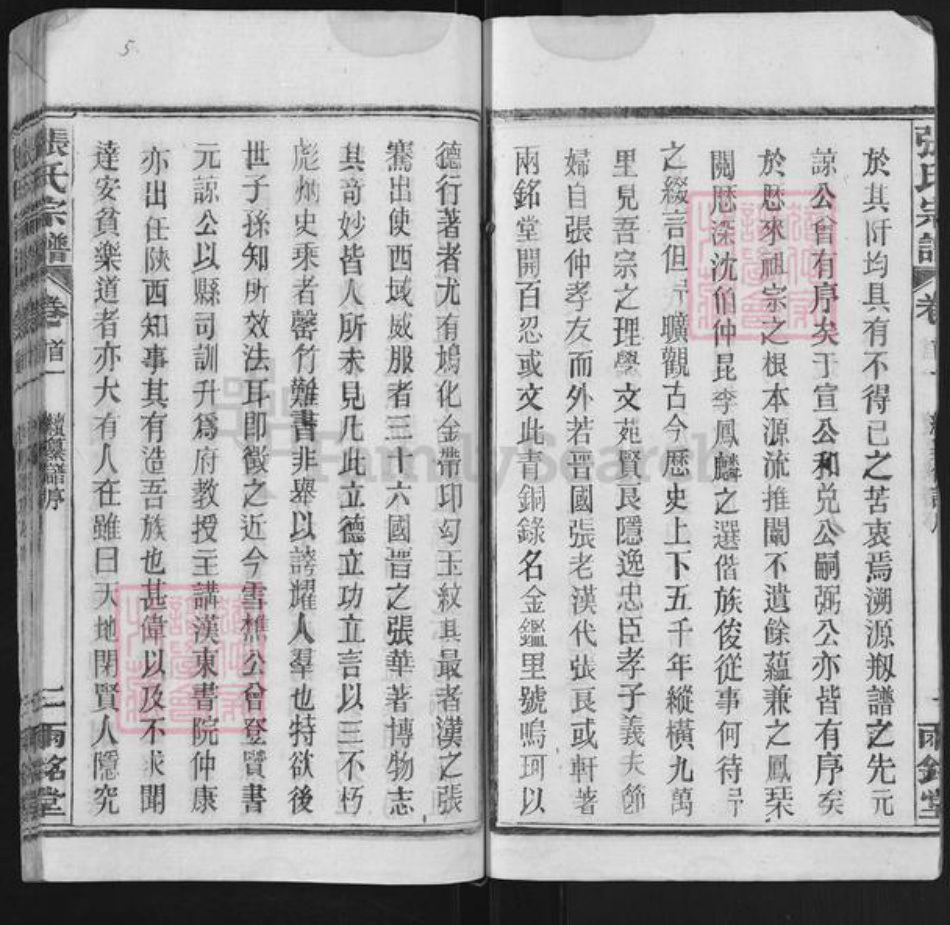 張氏宗譜
卷首一
於其阡均具有不得已之苦衷焉溯源剏譜之先元
諒公曾有序矣于宣公和兌公嗣弼公亦皆有序矣
於厯來祖宗之根本源流推闡不遺餘蘊兼之鳳栞
閱厯深沈伯仲昆李鳳麟之選偕族俊從事何待
之綴言但 曠觀古今厯史上下五千年縱橫九萬
里見吾宗之理學文苑賢良隱逸忠臣孝子義夫節
婦自張仲孝友而外若晋國張老漢代張良或軒著
兩銘堂開百忍或文此青銅錄名金鑑里號鳴珂以
德行著者尤有鳩化金帶印勾玉紋其最者漢之張
騫出使西域威服者三十六國晋之張華著博物志
其奇妙皆人所未見凡此立德立功立言以三不朽
彪炳史乘者罄竹難書非舉以誇耀人羣也特欲後
世子孫知所效法耳即徵之近今雪樵公曾登賢書
元諒公以縣司訓升爲府教授主講漢東書院仲康
亦出任陝西知事其有造吾族也甚偉以及不求聞
達安貧樂道者亦大有人在雖曰天地閉賢人隱究
張氏宗譜
卷首一
續纂譜序
二
兩銘堂
5
FamilySearch